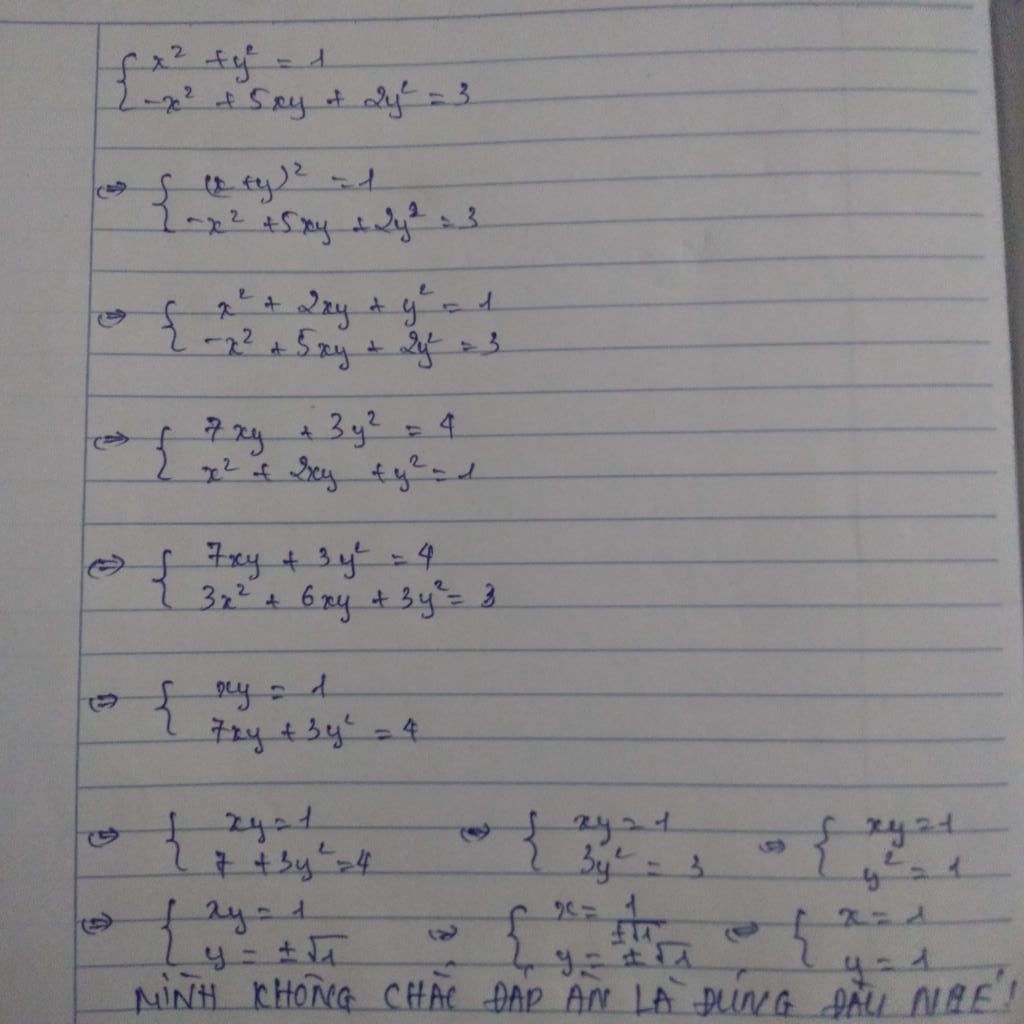 { x² + y² = 1
{ -x² + 5xy + 2y² = 3
⇔ { (x + y)² = 1
{ -x² + 5xy + 2y² = 3
⇔ { x² + 2xy + y² = 1
{ -x² + 5xy + 2y² = 3
⇔ { 7xy + 3y² = 4
{ x² + 2xy + y² = 1
⇔ { 7xy + 3y² = 4
{ 3x² + 6xy + 3y² = 3
⇔ { xy = 1
{ 7xy + 3y² = 4
⇔ { xy = 1 ⇔ { xy = 1 ⇔ { xy = 1
{ 7 + 3y² = 4 { 3y² = 3 { y² = 1
⇔ { xy = 1 ⇔ { x = 1/±√1 ⇔ { x = 1
{ y = ±√1 { y = ±√1 { y = 1
MÌNH KHÔNG CHẮC ĐÁP ÁN LÀ ĐÚNG ĐÂU NHÉ!